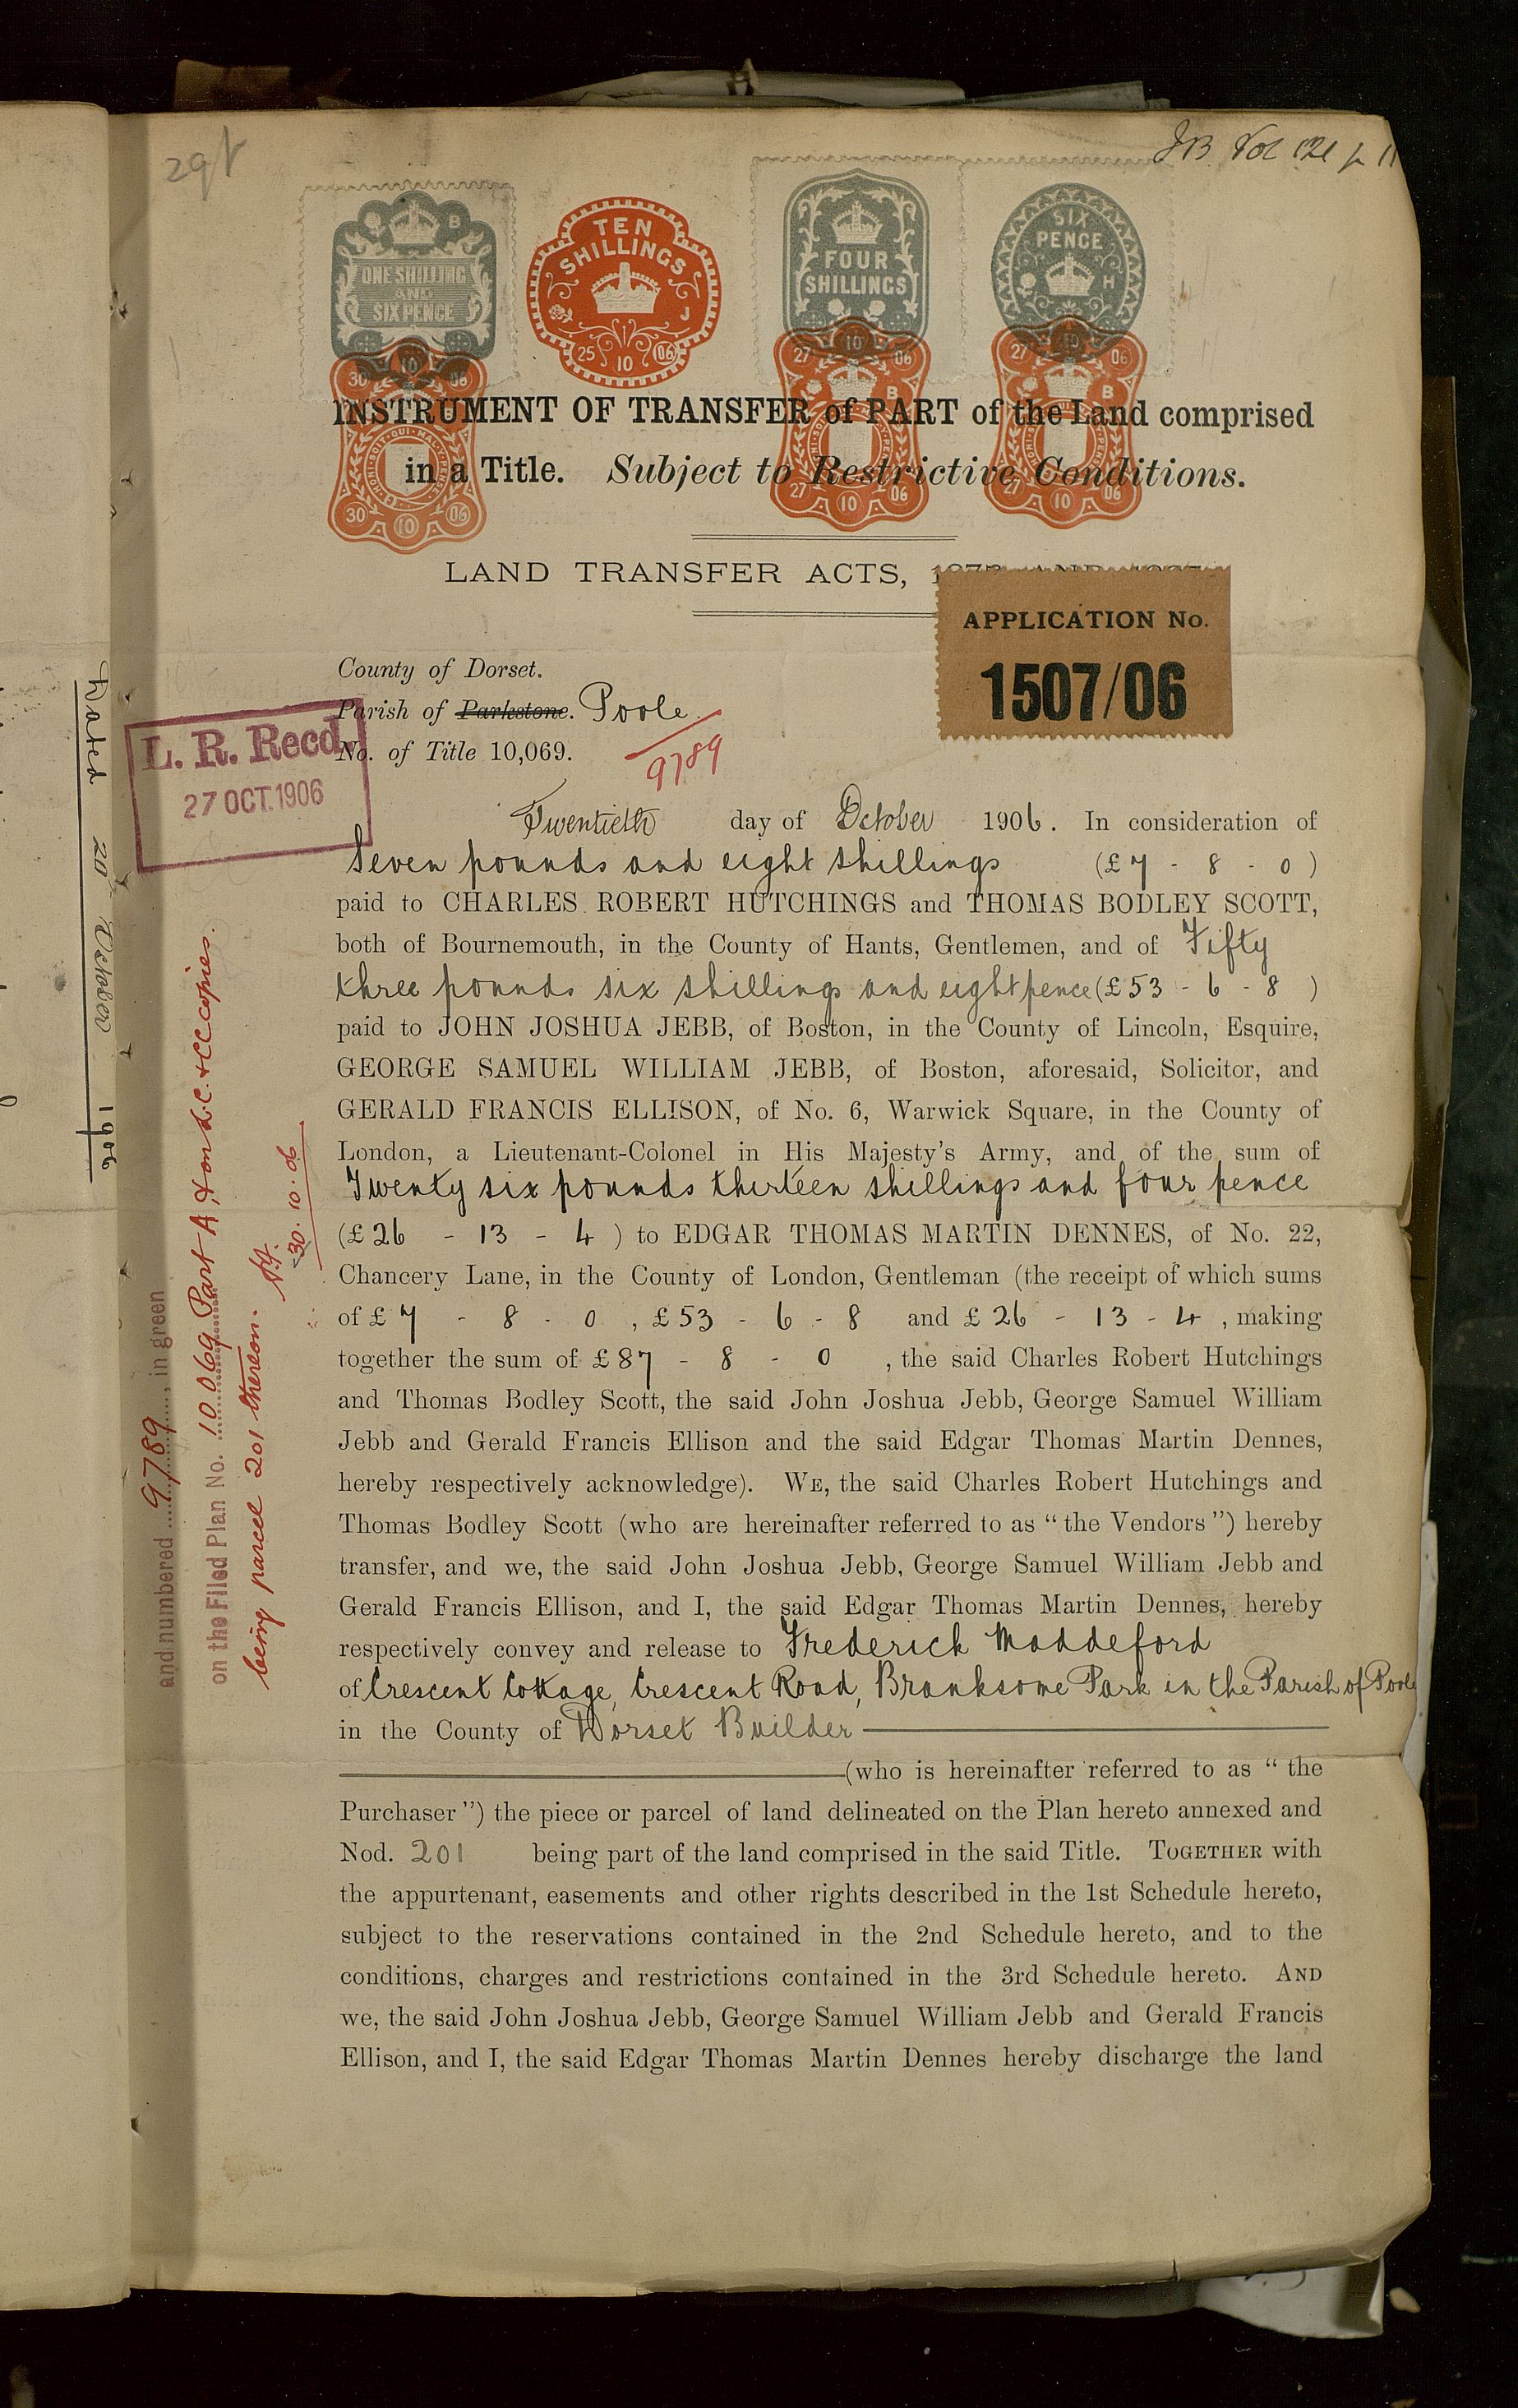 29
J.B. Vol 121 p 11
ONE SHILLING
AND
SIX PENCE
B
TEN
SHILLINGS
J
25 10 06
FOUR
SHILLINGS
SIX
PENCE
H
30 10 06
27 10 06
B
27 10 06
B
HONI·SOIT·QUI·MAL·Y·PENSE
30 10 06
27 10 06
27 10 06
INSTRUMENT OF TRANSFER of PART of the Land comprised
in a Title. Subject to Restrictive Conditions.
LAND TRANSFER ACTS,
APPLICATION No.
1507/06
County of Dorset.
Parish of Parkstone. Poole.
No. of Title 10,069.
9789
L. R. Recd
27 OCT. 1906
Twentieth day of October 1906. In consideration of
Seven pounds and eight shillings (£7 - 8 - 0)
paid to CHARLES ROBERT HUTCHINGS and THOMAS BODLEY SCOTT,
both of Bournemouth, in the County of Hants, Gentlemen, and of Fifty
three pounds six shillings and eightpence (£53 - 6 - 8 )
paid to JOHN JOSHUA JEBB, of Boston, in the County of Lincoln, Esquire,
GEORGE SAMUEL WILLIAM JEBB, of Boston, aforesaid, Solicitor, and
GERALD FRANCIS ELLISON, of No. 6, Warwick Square, in the County of
London, a Lieutenant-Colonel in His Majesty's Army, and of the sum of
Twenty six pounds thirteen shillings and four pence
(£26 - 13 - 4 ) to EDGAR THOMAS MARTIN DENNES, of No. 22,
Chancery Lane, in the County of London, Gentleman (the receipt of which sums
of £7 - 8 - 0 , £53 - 6 - 8 and £26 - 13 - 4 , making
together the sum of £87 - 8 - 0 , the said Charles Robert Hutchings
and Thomas Bodley Scott, the said John Joshua Jebb, George Samuel William
Jebb and Gerald Francis Ellison and the said Edgar Thomas Martin Dennes,
hereby respectively acknowledge). WE, the said Charles Robert Hutchings and
Thomas Bodley Scott (who are hereinafter referred to as “the Vendors”) hereby
transfer, and we, the said John Joshua Jebb, George Samuel William Jebb and
Gerald Francis Ellison, and I, the said Edgar Thomas Martin Dennes, hereby
respectively convey and release to Frederick Maddeford
of Crescent Cottage, Crescent Road, Branksome Park in the Parish of Poole
in the County of Dorset Builder
(who is hereinafter referred to as “the
Purchaser”) the piece or parcel of land delineated on the Plan hereto annexed and
Nod. 201 being part of the land comprised in the said Title. TOGETHER with
the appurtenant, easements and other rights described in the 1st Schedule hereto,
subject to the reservations contained in the 2nd Schedule hereto, and to the
conditions, charges and restrictions contained in the 3rd Schedule hereto. AND
we, the said John Joshua Jebb, George Samuel William Jebb and Gerald Francis
Ellison, and I, the said Edgar Thomas Martin Dennes hereby discharge the land
Dated 20th October 1906
and numbered 9789, in green
on the Filed Plan No. 10069 Part A, & on L.C. & CC copies.
being parcel 201 thereon.
30.10.06